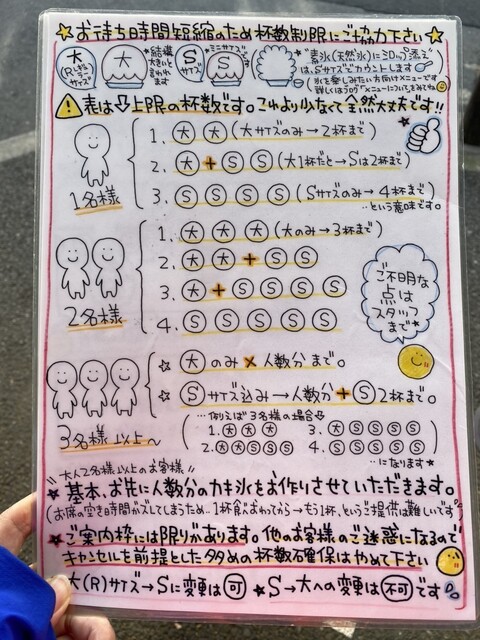 ☆お待ち時間短縮のため杯数制限にご協力下さい☆
大
(R)レギュラーサイズ
大
*結構大きいと言われます
S
サイズ
*ミニサイズ
S
"素氷(天然氷)にシロップ添え"
は、Sサイズでカウントします
(氷を楽しみたい方向けメニューです
詳しくはブログ"メニューについて"みてね
⚠表は⇩上限の杯数です。これより少なくて全然大丈夫です!!
1名様
1. 大 大 (大サイズのみ→2杯まで)
2. 大 + S S (大1杯だと→Sは2杯まで)
3. S S S S (Sサイズのみ→4杯まで)
…という意味です。
2名様
1. 大 大 大 (大のみ→3杯まで)
2. 大 大 + S S
3. 大 + S S S S
4. S S S S S
ご不明な
点は
スタッフ
まで★
3名様以上〜
☆ 大 のみ × 人数分 まで。
☆ S サイズ込み→人数分 + S 2杯まで。
…例えば3名様の場合⇩
1. 大 大 大
2. 大 大 S S S
3. 大 S S S S
4. S S S S S
…になります★
"大人2名様以上のお客様"
★基本、お先に人数分のカキ氷をお作りさせていただきます。
(お席の空き時間がズレてしまうため…1杯食べおわってから→もう1杯、というご提供は難しいです)
★ご案内枠には限りがあります。他のお客様のご迷惑になるので
キャンセルを前提とした多めの杯数確保はやめて下さい
大(R)サイズ→Sに変更は可 ★S→大への変更は不可です